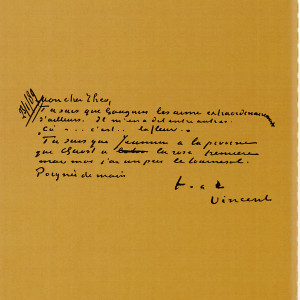 23/1/89
Mon cher Theo,
Tu sais que Gauguin les aime extraordinairement
d'ailleurs. Il m'en a dit entre autres.
"Ça - .. c'est .. la fleur."
Tu sais que Jeannin a la pivoine
que Quost a la rose tremière
mais moi j'ai un peu le tournesol.
Poignée de main
t. à t.
Vincent